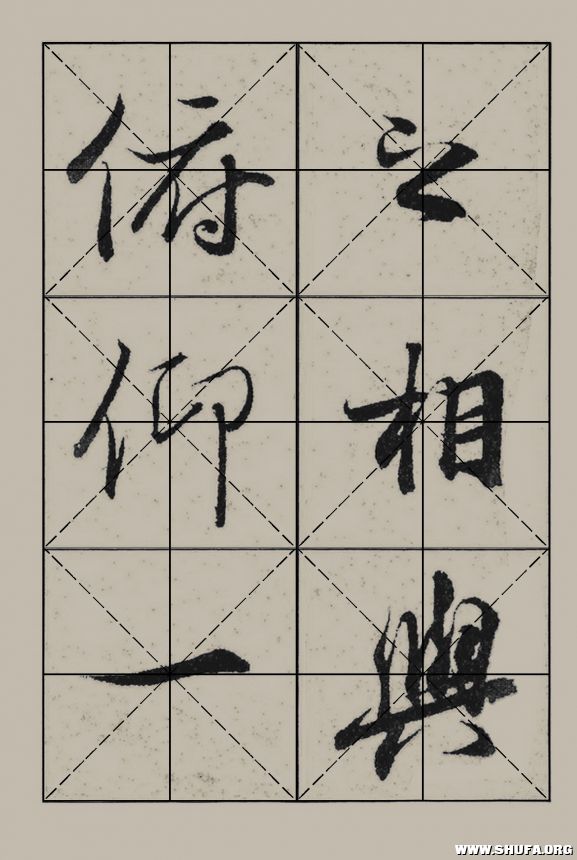 之相與
俯仰一
WWW.SHUFA.ORG